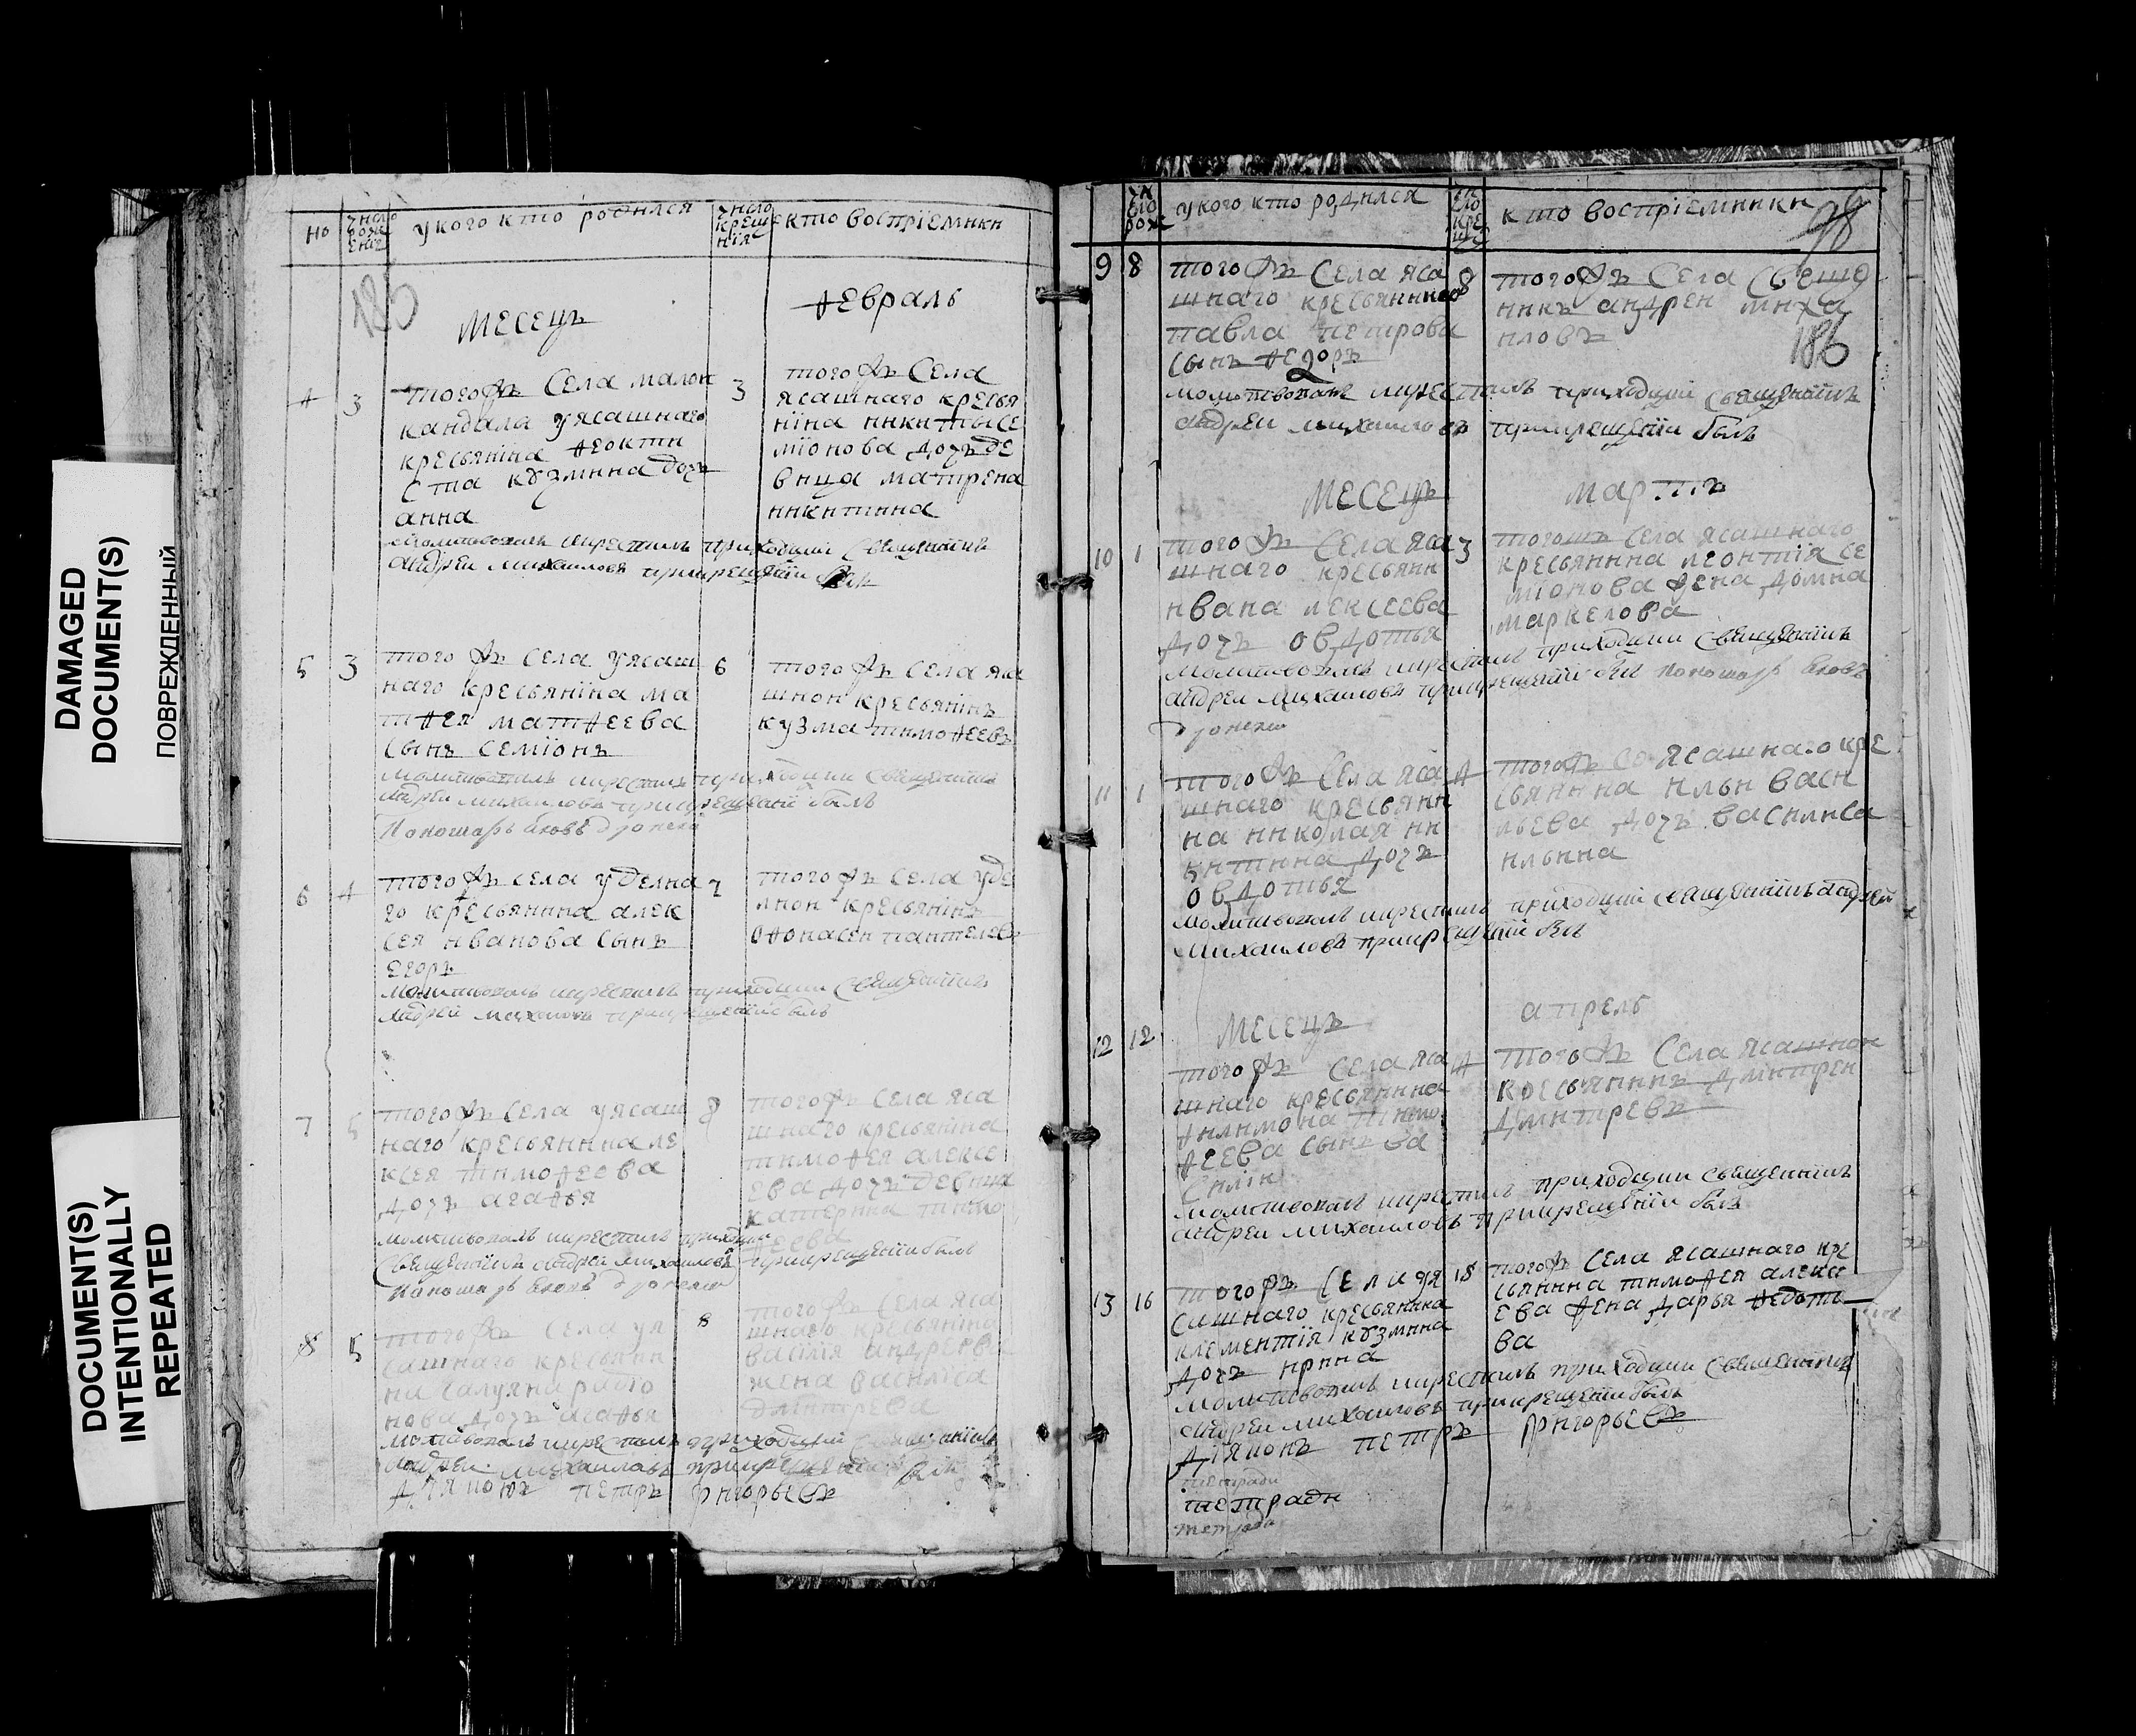 DAMAGED
DOCUMENT(S)
ПОВРЕЖДЕННЫЙ
DOCUMENT(S)
INTENTIONALLY
REPEATED
но
число рожденія
у кого кто родился
число крещенія
кто воспріемники
185
месецъ
февраль
4
3
тогожъ села малои
кандала у ясашнаго
кресьяніна феокти
ста кузмина дочъ
анна
3
тогожъ села
ясашнаго кресья
ніна никиты се
міонова дочъ де
вица матрена
никитина
молитвовалъ икрестилъ приходции священникъ
андреи михаиловъ прикрещеніи былъ
5
3
тогожъ села у ясаш
наго кресьяніна ма
тфея матфеева
сынъ семіонъ
6
тогожъ села яса
шнои кресьянінъ
кузма тимофеевъ
молитвовалъ икрестилъ приходции священникъ
андреи михаиловъ прикрещеніи былъ
6
4
тогожъ села уделна
го кресьянина алек
сея иванова сынъ
егоръ
7
тогожъ села уде
лнои кресьянінъ
офонасеи пантелевъ
молитвовалъ икрестилъ приходции священникъ
андреи михаиловъ прикрещеніи былъ
7
5
тогожъ села у ясаш
наго кресьянина ле
ксея тимофеева
дочъ агафья
8
тогожъ села яса
шнаго кресьяніна
тимофея алексе
ева дочъ девица
катерина тимо
феева
молитвовалъ икрестилъ приходции
священникъ андреи михаиловъ прикрещеніи былъ
8
5
тогожъ села у я
сашнаго кресьяни
на
дочъ агафья
8
тогожъ села яса
шнаго кресьяніна
васіліа андреева
жена василіса
дмитрева
молитвовалъ икрестилъ приходции священникъ
андреи михаиловъ прикрещеніи былъ
діяконъ петръ григорьевъ
число рож
у кого кто родился
число кре
кто воспріемники
98
9
8
тогожъ села яса
шнаго кресьянина
павла петрова
сынъ федоръ
8
тогожъ села свеще
никъ андреи миха
иловъ
186
молитвовалъ икрестилъ приходции священникъ
андреи михаиловъ прикрещеніи былъ
месецъ
мартъ
10
1
тогожъ села яса
шнаго кресьяни
ивана лексеева
дочъ овдотья
3
тогожъ села ясашнаго
кресьянина леонтія се
міонова жена домна
маркелова
молитвовалъ икрестилъ приходции священникъ
андреи михаиловъ прикрещеніи былъ
11
1
тогожъ села яса
шнаго кресьяни
на николая ни
китина дочъ
овдотья
4
тогожъ се ясашнаго кре
сьянина ильи васи
льева дочъ василиса
ильина
молитвовалъ икрестилъ приходции священникъ андреи
михаиловъ прикрещеніи былъ
месецъ
апрель
12
12
тогожъ села яса
шнаго кресьянина
филимона тимо
феева сынъ ва
силіи
тогожъ села ясашнои
кресьянинъ дмитреи
дмитревъ
молитвовалъ икрестилъ приходции священникъ
андреи михаиловъ прикрещеніи былъ
13
16
тогожъ села у я
сашнаго кресьянина
клементія кузмина
дочъ ирина
18
тогожъ села ясашнаго кре
сьянина тимофея алексе
ева жена дарья федото
ва
молитвовалъ икрестилъ приходции священникъ
андреи михаиловъ прикрещеніи былъ
діяконъ петръ григорьевъ
тетради
тетради
тетради